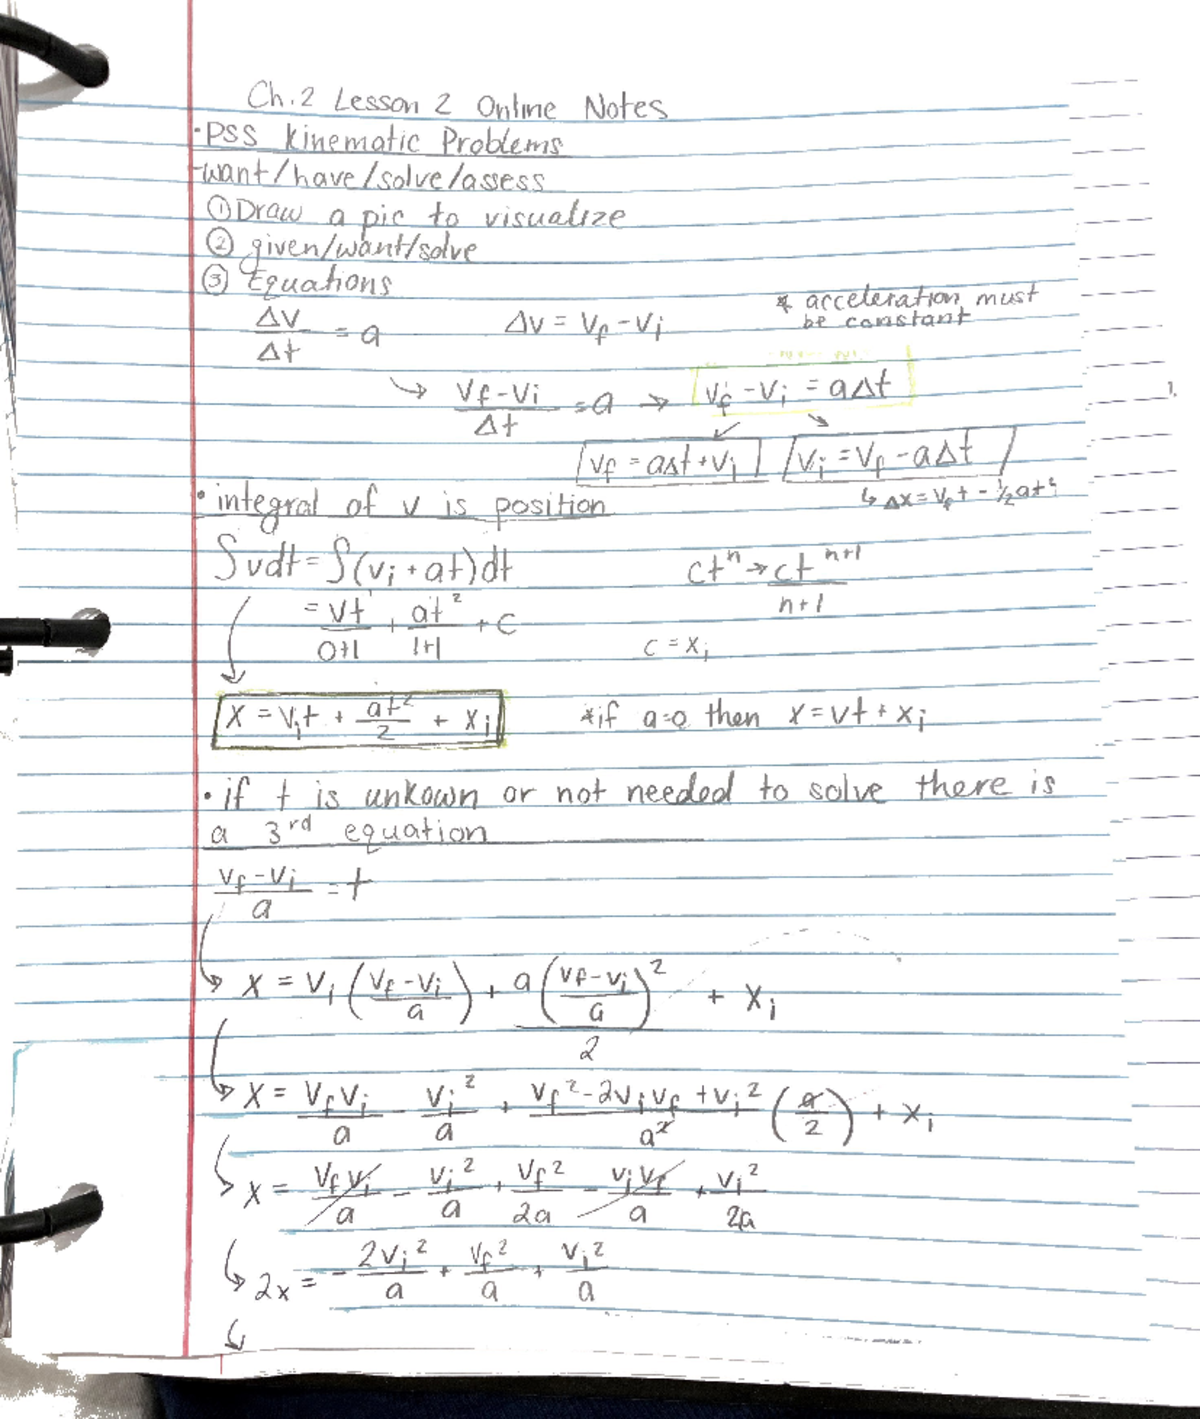 Ch.2 Lesson 2 Online Notes
·PSS Kinematic Problems
-want/have/solve/assess
① Draw a pic to visualize
② given/want/solve
③ Equations
Δv/Δt = a    Δv = Vf - Vi    * acceleration must be constant
↳ (Vf - Vi)/Δt = a → Vf - Vi = aΔt
Vf = aΔt + Vi    Vi = Vf - aΔt
↳ Δx = Vft - ½at²
· integral of v is position
∫vdt = ∫(vi + at)dt    ctⁿ → ctⁿ⁺¹/(n+1)
= vt/(0+1) + at²/(1+1) + c    c = xi
x = vit + at²/2 + xi    *if a=0 then x = vt + xi
· if t is unkown or not needed to solve there is
a 3rd equation
(Vf - Vi)/a = t
↳ x = Vi((Vf - Vi)/a) + a((Vf - Vi)/a)²/2 + xi
↳ x = VfVi/a - Vi²/a + (Vf² - 2ViVf + Vi²)/a² (a/2) + xi
↳ x = VfVi/a - Vi²/a + Vf²/2a - ViVf/a + Vi²/2a
↳ 2x = -2Vi²/a + Vf²/a + Vi²/a